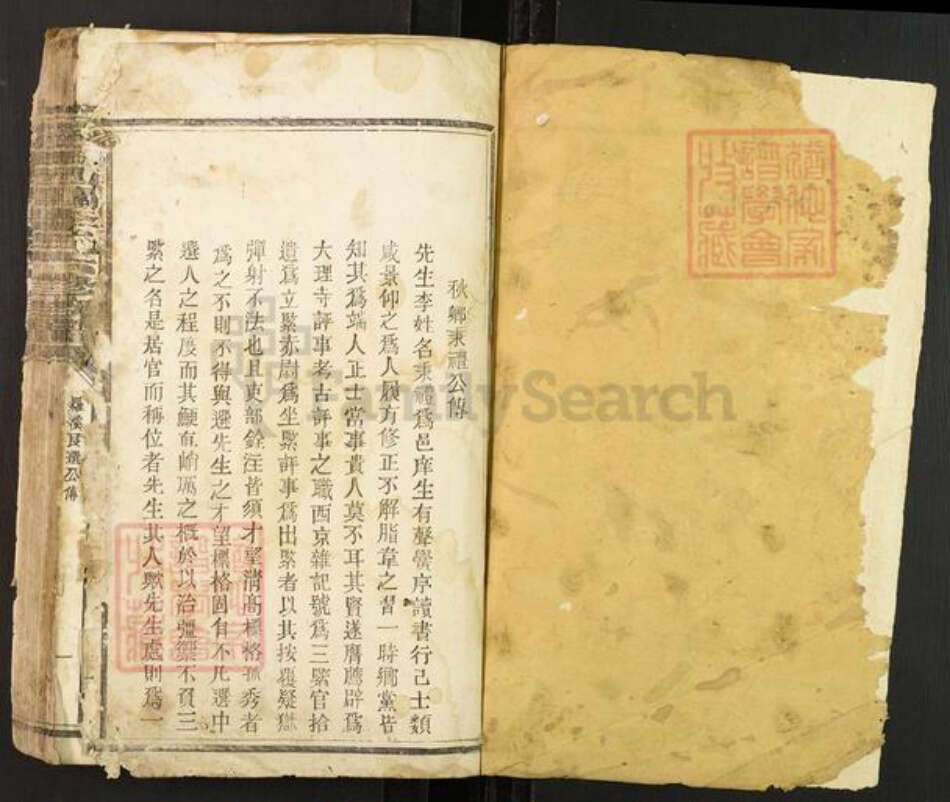 秋鄉秉禮公傳
先生李姓名秉禮爲邑庠生有聲黌序讀書行己士類
咸景仰之爲人履方修正不解脂韋之習一時鄉黨皆
知其爲端人正士當事貴人莫不耳其賢遂膺薦辟爲
大理寺評事考古評事之職西京雜記號爲三緊官拾
遺爲立緊赤尉爲坐緊評事爲出緊者以其按覆疑獄
彈射不法也且吏部銓注皆須才望清高標格孤秀者
爲之不則不得與選先生之才望標格固自不凡選中
選人之程度而其鯁直之概於以治疆禦不負三
緊之名是居官而稱位者先生其人歟先生處則爲一
羅溪良選公傳
一
譜學會
收藏
FamilySearch